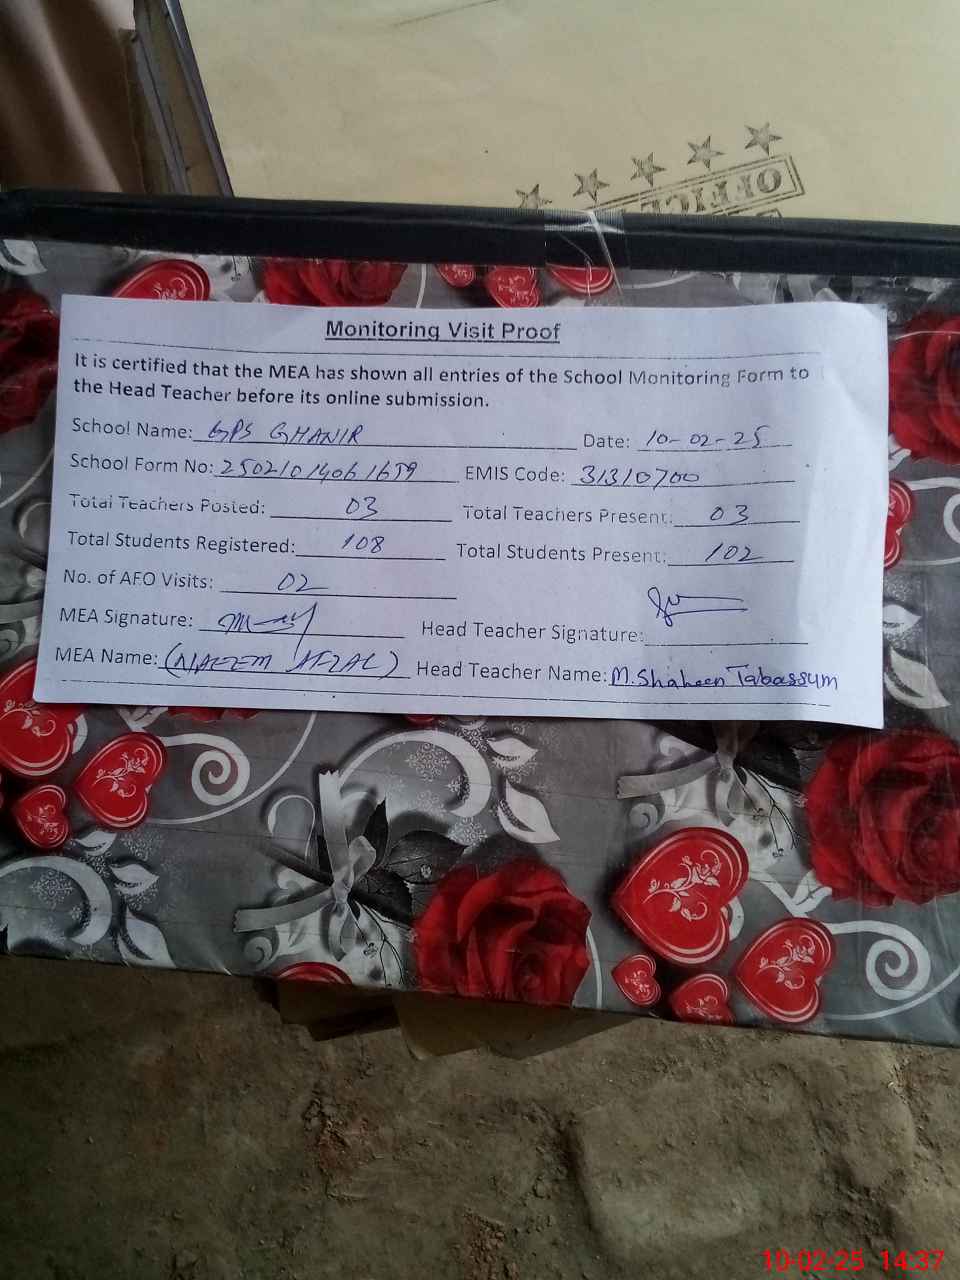 OFFICE
Monitoring Visit Proof
It is certified that the MEA has shown all entries of the School Monitoring Form to
the Head Teacher before its online submission.
School Name: GPS GHANIR Date: 10-02-25
School Form No: 25021014061659 EMIS Code: 31310700
Total Teachers Posted: 03 Total Teachers Present: 03
Total Students Registered: 108 Total Students Present: 102
No. of AFO Visits: 02
MEA Signature: Head Teacher Signature:
MEA Name: (NAEEM AFZAL) Head Teacher Name: M.Shaheen Tabassum
10-02-25 14:37